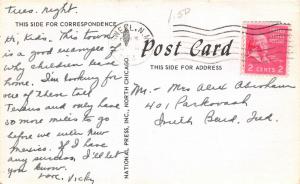 Tues. night.
THIS SIDE FOR CORRESPONDENCE
Hi, Kids. This town
is a good example of
why chicken leave
home. I'm looking for
one of those tall
Texans and only have
50 more miles to go
before we enter New
Mexico. If I have
any success I'll let
you know.
Love, Vicky
NATIONAL PRESS, INC., NORTH CHICAGO
1.50
Post Card
THIS SIDE FOR ADDRESS
2 CENTS 2
Mr. - Mrs Alex Abraham
401 Parkovash
South Bend, Ind.